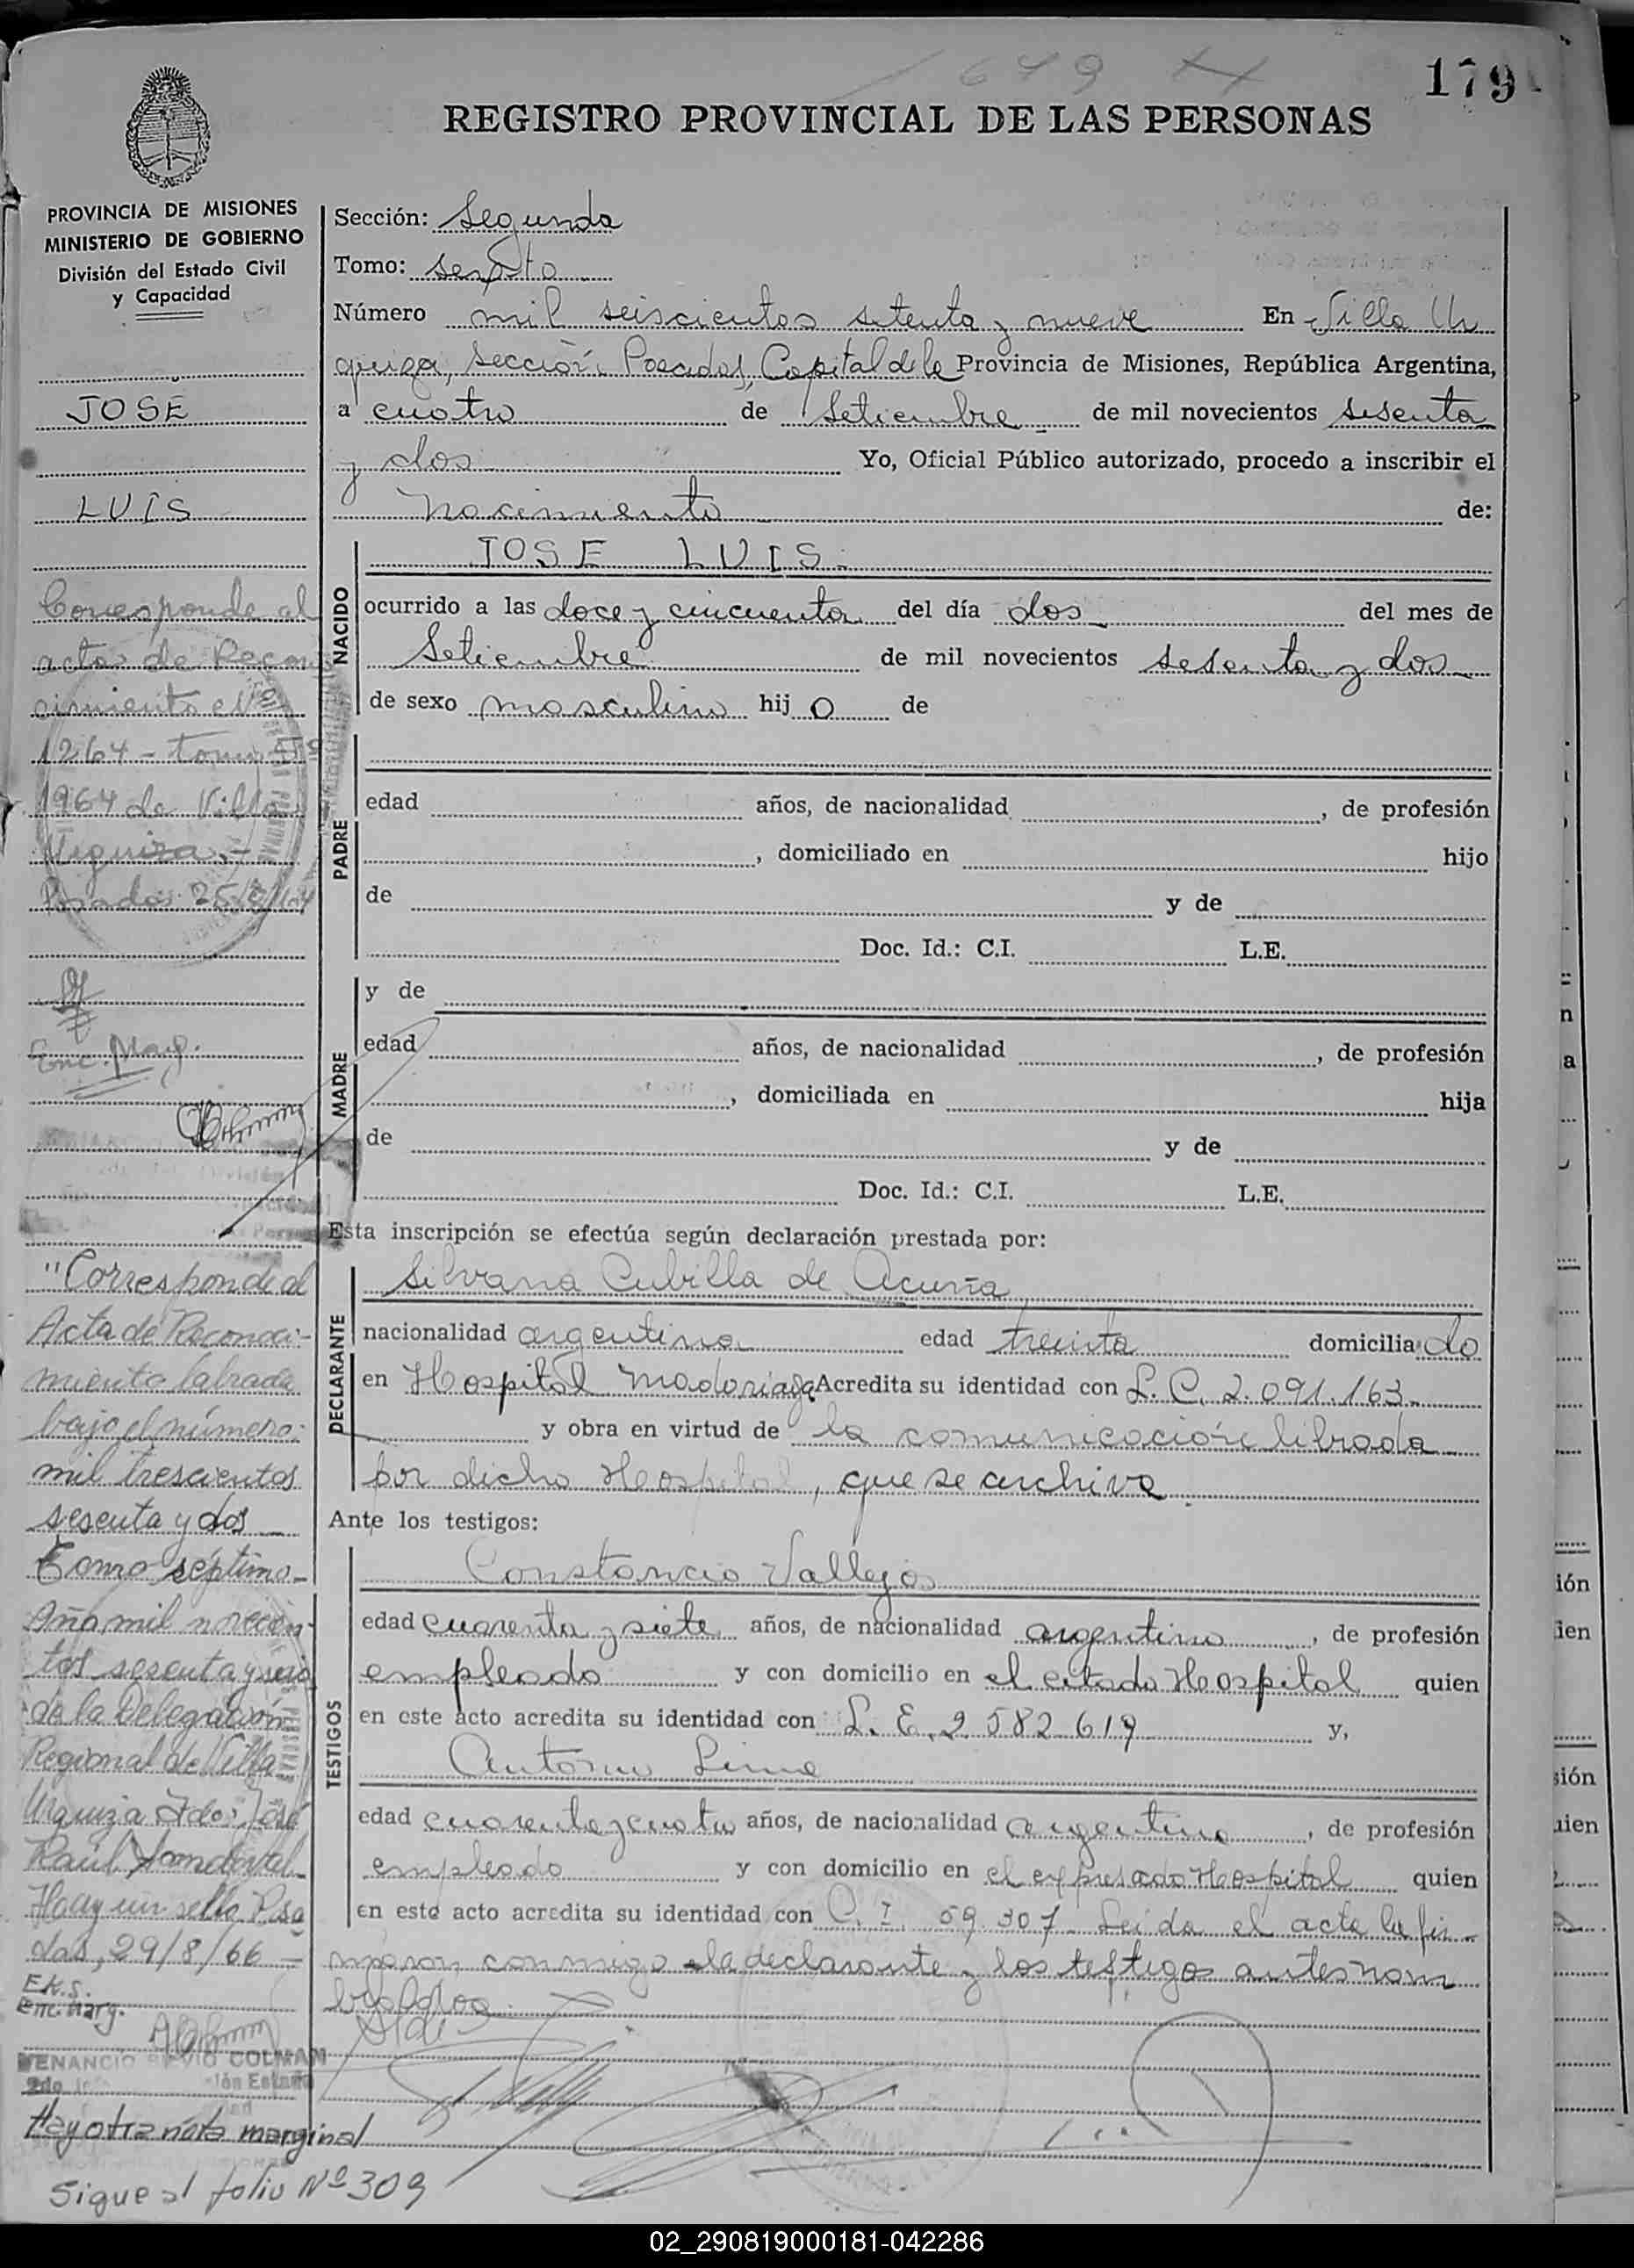 1679
179
REGISTRO PROVINCIAL DE LAS PERSONAS
PROVINCIA DE MISIONES
MINISTERIO DE GOBIERNO
División del Estado Civil
y Capacidad
JOSE
LUIS
Corresponde al
acta de Recono
cimiento el
1264 - tomo
1964 de Villa
Urquiza.-
Posadas 25/
Enc. Marg.
"Corresponde al
Acta de Reconoci-
miento labrada
bajo el número:
mil trescientos
sesenta y dos
Tomo séptimo-
Año mil novecien-
tos sesenta y seis
de la Delegación
Regional de Villa
Urquiza Fdo: José
Raúl Sandoval
Hay un sello Psa
das, 29/8/66 -
E.K.S.
enc. marg.
VENANCIO SILVIO COLMAN
2do. ión Estado
Hay otra nota marginal
Sigue al folio Nº 309
Sección: Segunda
Tomo: Sexto
Número mil seiscientos setenta y nueve En Villa Ur
quiza, Sección Posadas, Capital de la Provincia de Misiones, República Argentina,
a cuatro de Setiembre de mil novecientos sesenta
y dos Yo, Oficial Público autorizado, procedo a inscribir el
nacimiento de:
NACIDO
JOSE LUIS.-
ocurrido a las doce y cincuenta del día dos del mes de
Setiembre de mil novecientos sesenta y dos
de sexo masculino hij o de
PADRE
edad años, de nacionalidad , de profesión
, domiciliado en hijo
de y de
Doc. Id.: C.I. L.E.
MADRE
y de
edad años, de nacionalidad , de profesión
, domiciliada en hija
de y de
Doc. Id.: C.I. L.E.
Esta inscripción se efectúa según declaración prestada por:
DECLARANTE
Silvana Cubilla de Acuña
nacionalidad argentina edad treinta domicilia do
en Hospital Madariaga Acredita su identidad con L. C. 2.091.163.
y obra en virtud de la comunicación librada
por dicho Hospital, que se archiva
Ante los testigos:
TESTIGOS
Constancio Vallejos
edad cuarenta y siete años, de nacionalidad argentino , de profesión
empleado y con domicilio en el citado Hospital quien
en este acto acredita su identidad con L. E. 2 582 619 y,
Antonio Lima
edad cuarenta y cuatro años, de nacionalidad argentino , de profesión
empleado y con domicilio en el expresado Hospital quien
en este acto acredita su identidad con C. I. 59.307 Leída el acta la fir-
maron conmigo la declarante y los testigos antes nom
brados.
02_290819000181-042286